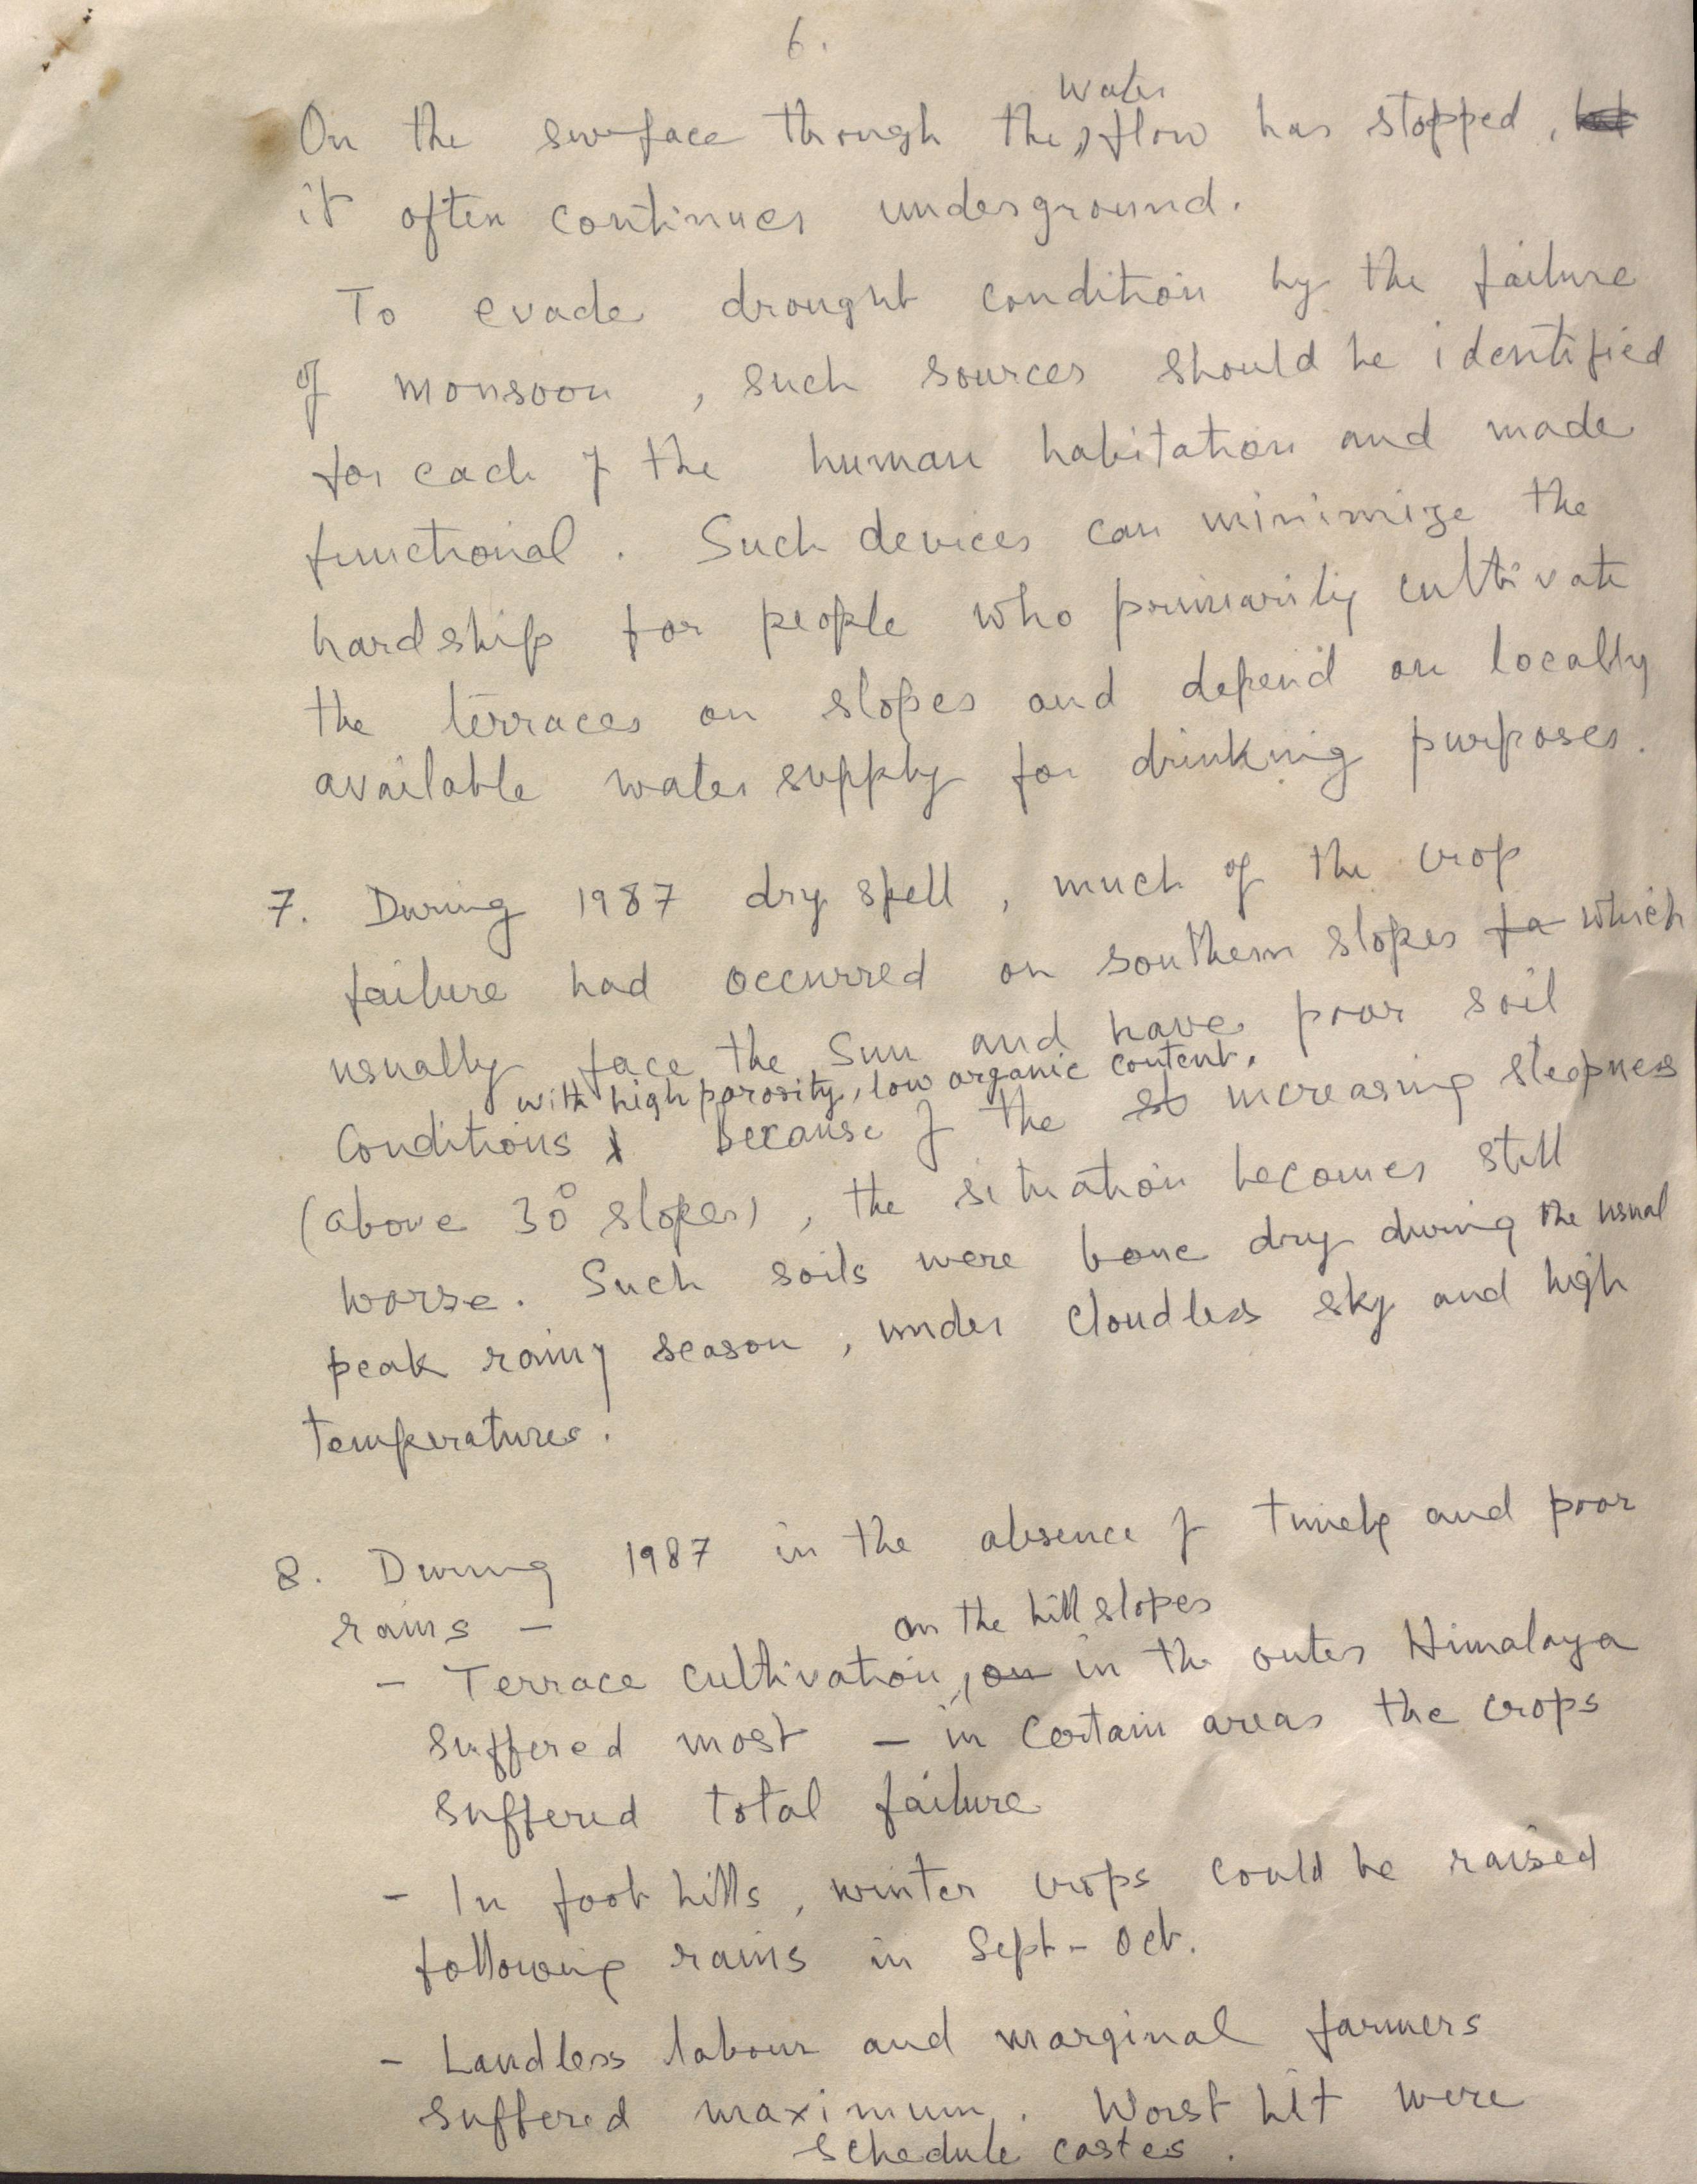 6.
On the surface through the water flow has stopped,
it often continues underground.
To evade drought condition by the failure
of monsoon, such sources should be identified
for each of the human habitation and made
functional. Such devices can minimize the
hardship for people who primarily cultivate
the terraces on slopes and depend on locally
available water supply for drinking purposes.
7. During 1987 dry spell, much of the crop
failure had occurred on southern slopes fa which
usually face the Sun and have poor soil
with high porosity, low organic content.
Conditions Because of the st increasing steepness
(above 30° slopes), the situation becomes still
worse. Such soils were bone dry during the usual
peak rainy season, under cloudless sky and high
temperatures.
8. During 1987 in the absence of timely and poor
rains -
on the hill slopes
- Terrace cultivation, on in the outer Himalaya
suffered most - in certain areas the crops
suffered total failure
- In foot hills, winter crops could be raised
following rains in Sept-Oct.
- Landless labour and marginal farmers
suffered maximum. Worst hit were
schedule castes.